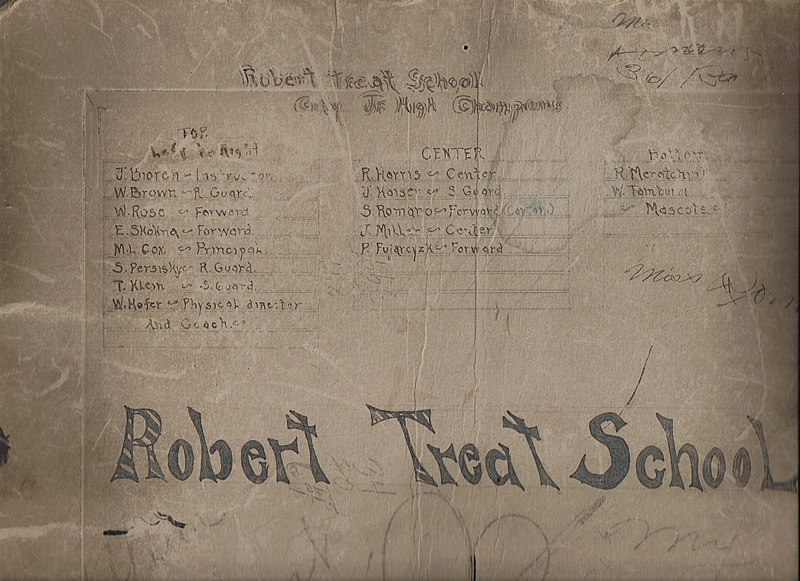 Robert Treat School
City Jr High Champions
TOP
Left to Right
J. Bioren ~ Instructor
W. Brown ~ R. Guard
W. Rose ~ Forward
E. Skokna ~ Forward
M.L. Cox ~ Principal
S. Persisky ~ R. Guard
T. Klein ~ S. Guard
W. Hofer ~ Physical director
And Coach ~
CENTER
R. Harris ~ Center
J. Holser ~ S. Guard
S. Romano ~ Forward (Captain)
J. Miller ~ Center
P. Fujarczyk ~ Forward
Bottom
W.
~ Mascots
Miss
Miss
Robert Treat School